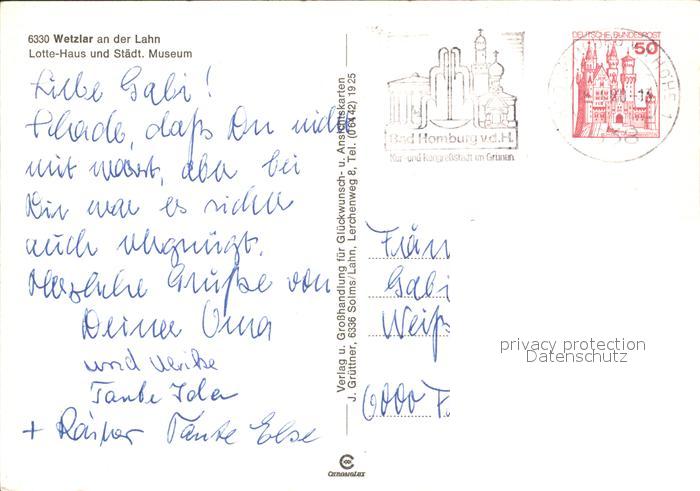 6330 Wetzlar an der Lahn
Lotte-Haus und Städt. Museum
Liebe Gabi!
Schade, daß Du nicht
mit warst, aber bei
Dir war es sicher
auch vergnügt.
Herzliche Grüße von
Deiner Oma
und Ulrike
Tante Ida
+ Rainer Tante Else
Verlag u. Großhandlung für Glückwunsch- u. Ansichtskarten
J. Grüttner, 6336 Solms/Lahn, Lerchenweg 8, Tel. (06442) 1925
Cekade
Bad Homburg v.d.H.
Kur- und Kongreßstadt im Grünen
DEUTSCHE BUNDESPOST
50
Fräu
Gabi
Weiß
6000 F.
privacy protection
Datenschutz